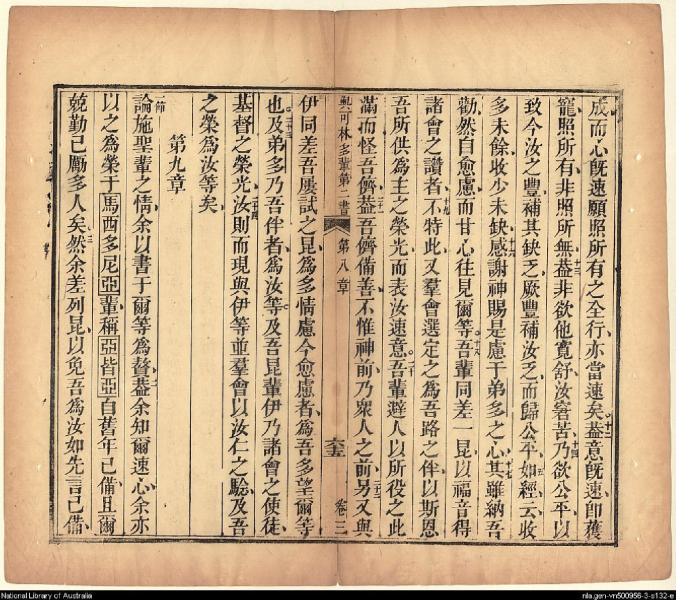 成而心旣速願照所有之全行亦當速矣十二葢意旣速卽獲
寵照所有非照所無十三葢非欲他寬舒汝窘苦十四乃欲公平以
致今汝之豐補其缺乏厥豐補汝乏而歸公平十五如經云收
多未餘收少未缺十六感謝神賜是慮于弟多之心十七其雖納吾
勸然自愈慮而甘心往見爾等十八吾輩同差一昆以福音得
諸會之讚者十九不特此又羣會選定之爲吾路之伴以斯恩
吾所供爲主之榮光而表汝速意二十吾輩避人以所役之此
滿而怪吾儕二一葢吾儕備善不惟神前乃衆人之前二二另又與
與可林多輩第二書 第八章 六五 卷三
伊同差吾屢試之昆爲多情慮今愈慮者爲吾多望爾等
也二三及弟多乃吾伴者爲汝等及吾昆輩伊乃諸會之使徒
基督之榮光二四汝則而現與伊等並羣會以汝仁之驗及吾
之榮爲汝等矣
第九章
一節論施聖輩之情余以書于爾等爲贅二葢余知爾速心余亦
以之爲榮于馬西多尼亞輩稱亞皆亞自舊年已備且爾
兢勤已勵多人矣三然余差列昆以免吾爲汝如先言已備
National Library of Australia
nla.gen-vn500956-3-s132-e